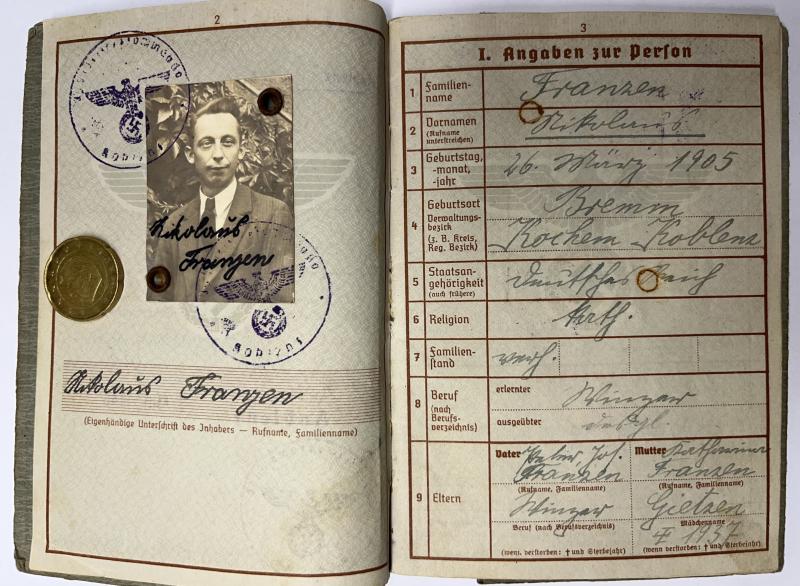 2
Koblenz
Nikolaus
Franzen
Koblenz
Nikolaus Franzen
(Eigenhändige Unterschrift des Inhabers — Rufname, Familienname)
3
I. Angaben zur Person
1 Familien-
name
Franzen
2 Vornamen
(Rufname
unterstreichen)
Nikolaus
3 Geburtstag,
-monat,
-jahr
26. März 1905
4 Geburtsort
Verwaltungs-
bezirk
(z. B. Kreis,
Reg. Bezirk)
Bremm
Kochem Koblenz
5 Staatsan-
gehörigkeit
(auch frühere)
Deutsches Reich
6 Religion
kath.
7 Familien-
stand
verh.
8 Beruf
(nach
Berufs-
verzeichnis)
erlernter
Winzer
ausgeübter
desgl.
9 Eltern
Vater Peter Jos.
Franzen
(Rufname, Familienname)
Winzer
Beruf (nach Berufsverzeichnis)
(wenn verstorben: † und Sterbejahr)
Mutter Katharina
Franzen
(Rufname, Familienname)
Gietzen
Mädchenname
† 1937
(wenn verstorben: † und Sterbejahr)